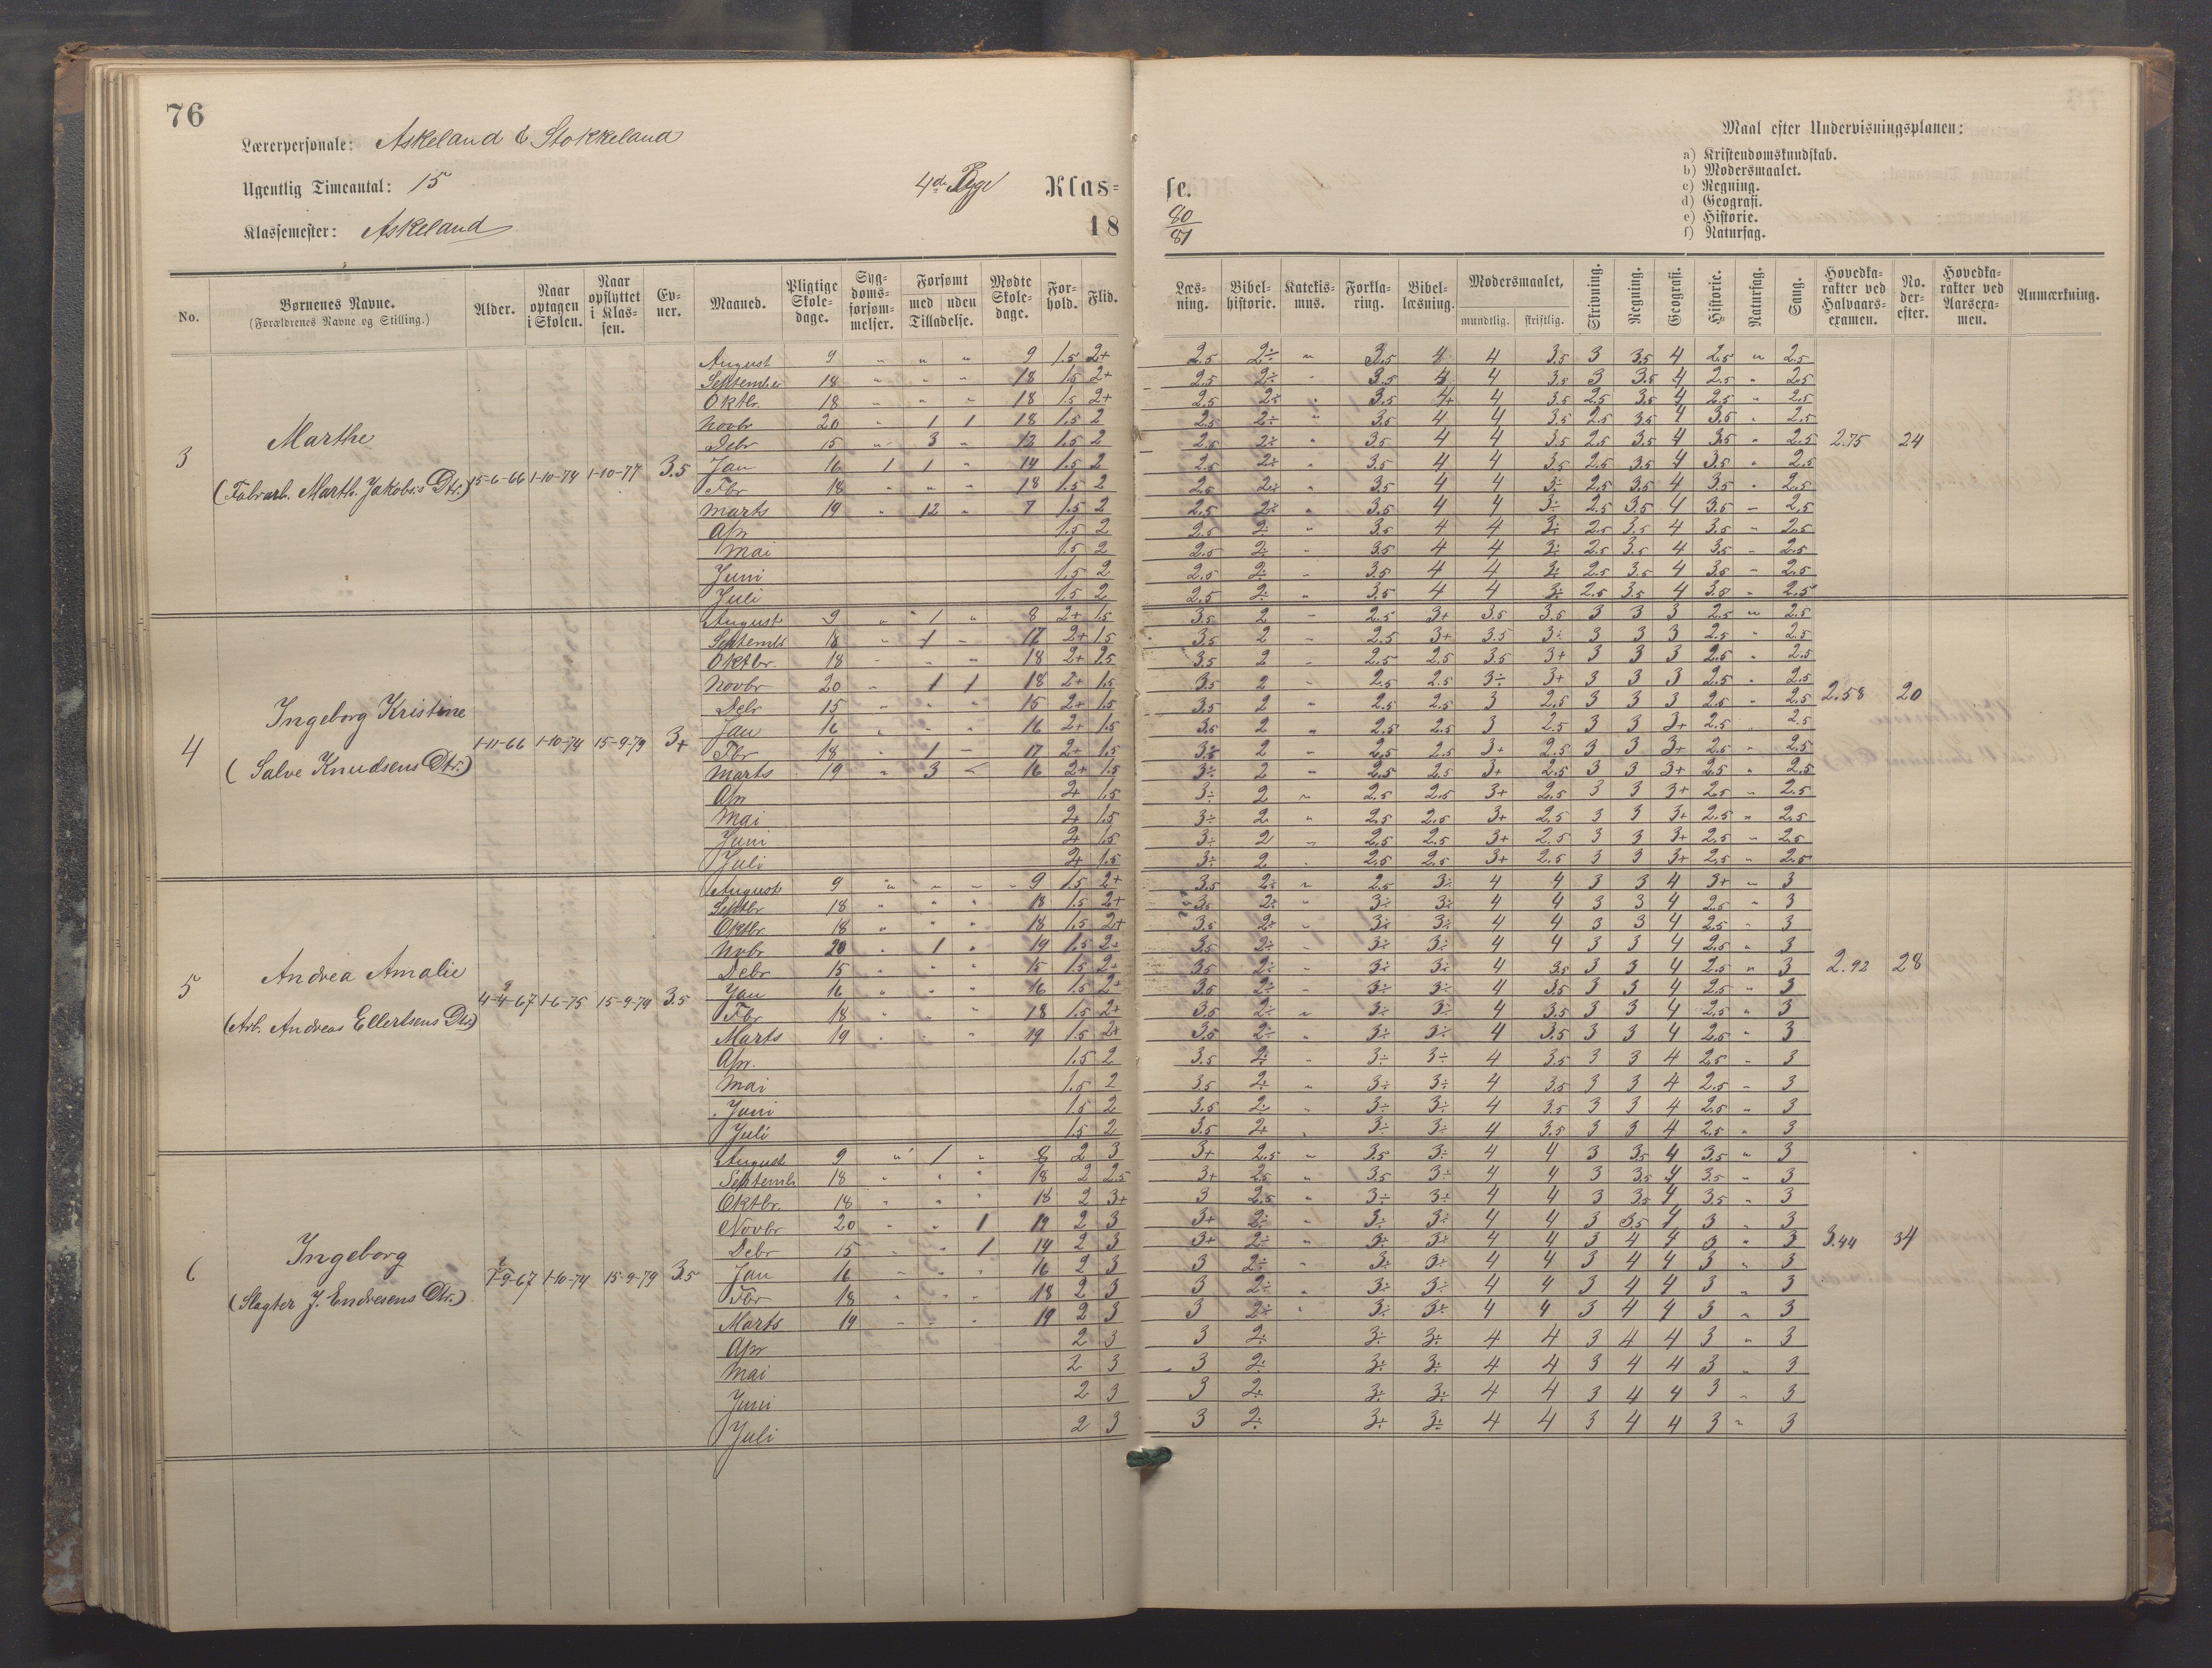 76
Lærerpersonale: Askeland & Stokkeland
Ugentlig Timeantal: 15
4de Pige Klas=
Klassemester: Askeland
18
se.
80/81
Maal efter Undervisningsplanen:
a) Kristendomskundskab.
b) Modersmaalet.
c) Regning.
d) Geografi.
e) Historie.
f) Naturfag.
No. | Børnenes Navne. (Forældrenes Navne og Stilling.) | Alder. | Naar optagen i Skolen. | Naar opflyttet i Klassen. | Evner. | Maaned. | Pligtige Skoledage. | Sygdomsforsømmelser. | Forsømt med uden Tilladelse. | Mødte Skoledage. | Forhold. | Flid. | Læsning. | Bibelhistorie. | Katekismus. | Forklaring. | Bibellæsning. | Modersmaalet, mundtlig. skriftlig. | Skrivning. | Regning. | Geografi. | Historie. | Naturfag. | Sang. | Hovedkarakter ved Halvaarsexamen. | No. derefter. | Hovedkarakter ved Aarsexamen. | Anmærkning.
3 Marthe
(Fabrarb. Marth. Jakobs's Dtr.) 15-6-66 1-10-74 1-10-77 3.5
August 9 " " " 9 1.5 2+ 2.5 2÷ " 3.5 4 4 3.5 3 3.5 4 2.5 " 2.5
September 18 " " " 18 1.5 2+ 2.5 2÷ " 3.5 4 4 3.5 3 3.5 4 2.5 " 2.5
Oktbr. 18 " " " 18 1.5 2+ 2.5 2÷ " 3.5 4+ 4 3.5 2.5 3.5 4 2.5 " 2.5
Novbr 20 " 1 1 18 1.5 2 2.5 2÷ " 3.5 4 4 3.5 2.5 3.5 4 3.5 " 2.5
Debr 15 " 3 " 12 1.5 2 2.5 2÷ " 3.5 4 4 3.5 2.5 3.5 4 3.5 " 2.5 2.75 24
Jan 16 1 1 " 14 1.5 2 2.5 2÷ " 3.5 4 4 3.5 2.5 3.5 4 3.5 " 2.5
Fbr 18 " " " 18 1.5 2 2.5 2÷ " 3.5 4 4 3÷ 2.5 3.5 4 3.5 " 2.5
Marts 19 " 12 " 7 1.5 2 2.5 2÷ " 3.5 4 4 3÷ 2.5 3.5 4 3.5 " 2.5
Apr 1.5 2 2.5 2÷ " 3.5 4 4 3÷ 2.5 3.5 4 3.5 " 2.5
Mai 1.5 2 2.5 2÷ " 3.5 4 4 3÷ 2.5 3.5 4 3.5 " 2.5
Juni 1.5 2 2.5 2÷ " 3.5 4 4 3÷ 2.5 3.5 4 3.5 " 2.5
Juli 1.5 2 2.5 2÷ " 3.5 4 4 3÷ 2.5 3.5 4 3.5 " 2.5
4 Ingeborg Kristine
(Salve Knudsens Dtr.) 1-11-66 1-10-74 15-9-79 3+
August 9 " 1 " 8 2+ 1.5 3.5 2 " 2.5 3+ 3.5 3.5 3 3 3 2.5 " 2.5
Septembr 18 " 1 " 17 2+ 1.5 3.5 2 " 2.5 3+ 3.5 3÷ 3 3 3 2.5 " 2.5
Oktbr. 18 " " " 18 2+ 1.5 3.5 2 " 2.5 2.5 3.5 3+ 3 3 3 2.5 " 2.5
Novbr 20 " 1 1 18 2+ 1.5 3.5 2 " 2.5 2.5 3÷ 3+ 3 3 3 2.5 " 2.5
Debr 15 " " " 15 2+ 1.5 3.5 2 " 2.5 2.5 3 2.5 3 3 3 2.5 " 2.5 2.58 20
Jan 16 " " " 16 2+ 1.5 3.5 2 " 2.5 2.5 3 2.5 3 3 3+ 2.5 " 2.5
Fbr 18 " 1 " 17 2+ 1.5 3÷ 2 " 2.5 2.5 3+ 2.5 3 3 3+ 2.5 " 2.5
Marts 19 " 3 " 16 2+ 1.5 3÷ 2 " 2.5 2.5 3+ 2.5 3 3 3+ 2.5 " 2.5
Apr 2+ 1.5 3÷ 2 " 2.5 2.5 3+ 2.5 3 3 3+ 2.5 " 2.5
Mai 2+ 1.5 3÷ 2 " 2.5 2.5 3+ 2.5 3 3 3+ 2.5 " 2.5
Juni 2+ 1.5 3÷ 2 " 2.5 2.5 3+ 2.5 3 3 3+ 2.5 " 2.5
Juli 2+ 1.5 3÷ 2 " 2.5 2.5 3+ 2.5 3 3 3+ 2.5 " 2.5
5 Andrea Amalie
(Arb. Andreas Ellertsens Dtr.) 4-4-67 1-6-75 15-9-79 3.5
August 9 " " " 9 1.5 2+ 3.5 2÷ " 2.5 3÷ 4 4 3 3 4 3+ " 3
Septbr 18 " " " 18 1.5 2+ 3.5 2÷ " 3÷ 3÷ 4 4 3 3 4 2.5 " 3
Oktbr. 18 " " " 18 1.5 2+ 3.5 2÷ " 3÷ 3÷ 4 4 3 3 4 2.5 " 3
Nvbr 20 " 1 " 19 1.5 2+ 3.5 2÷ " 3÷ 3÷ 4 4 3 3 4 2.5 " 3
Debr 15 " " " 15 1.5 2+ 3.5 2÷ " 3÷ 3÷ 4 3.5 3 3 4 2.5 " 3 2.92 28
Jan 16 " " " 16 1.5 2+ 3.5 2÷ " 3÷ 3÷ 4 3.5 3 3 4 2.5 " 3
Fbr 18 " " " 18 1.5 2+ 3.5 2÷ " 3÷ 3÷ 4 3.5 3 3 4 2.5 " 3
Marts 19 " " " 19 1.5 2+ 3.5 2÷ " 3÷ 3÷ 4 3.5 3 3 4 2.5 " 3
Apr. 1.5 2 3.5 2÷ " 3÷ 3÷ 4 3.5 3 3 4 2.5 " 3
Mai 1.5 2 3.5 2÷ " 3÷ 3÷ 4 3.5 3 3 4 2.5 " 3
Juni 1.5 2 3.5 2÷ " 3÷ 3÷ 4 3.5 3 3 4 2.5 " 3
Juli 1.5 2 3.5 2÷ " 3÷ 3÷ 4 3.5 3 3 4 2.5 " 3
6 Ingeborg
(Slagter J. Endresens Dtr.) 1-9-67 1-10-74 15-9-79 3.5
August 9 " 1 " 8 2 3 3+ 2.5 " 3.5 3÷ 4 4 3 3.5 4 3.5 " 3
Septembr 18 " " " 18 2 2.5 3+ 2.5 " 3.5 3÷ 4 4 3 3.5 4 3.5 " 3
Oktbr. 18 " " " 18 2 3+ 3 2.5 " 3÷ 3÷ 4 4 3 3.5 4 3.5 " 3
Novbr 20 " " 1 19 2 3 3+ 2÷ " 3÷ 3÷ 4 4 3 3.5 4 3 " 3
Debr 15 " " 1 14 2 3 3+ 2÷ " 3÷ 3÷ 4 4 3 4 4 3 " 3 3.44 34
Jan 16 " " " 16 2 3 3 2÷ " 3÷ 3÷ 4 4 3 4 4 3 " 3
Fbr 18 " " " 18 2 3 3 2÷ " 3÷ 3÷ 4 4 3 4 4 3 " 3
Marts 19 " " " 19 2 3 3 2÷ " 3÷ 3÷ 4 4 3 4 4 3 " 3
Apr 2 3 3 2÷ 3÷ 3÷ 4 4 3 4 4 3 " 3
Mai 2 3 3 2÷ 3÷ 3÷ 4 4 3 4 4 3 " 3
Juni 2 3 3 2÷ 3÷ 3÷ 4 4 3 4 4 3 " 3
Juli 2 3 3 2÷ 3÷ 3÷ 4 4 3 4 4 3 " 3